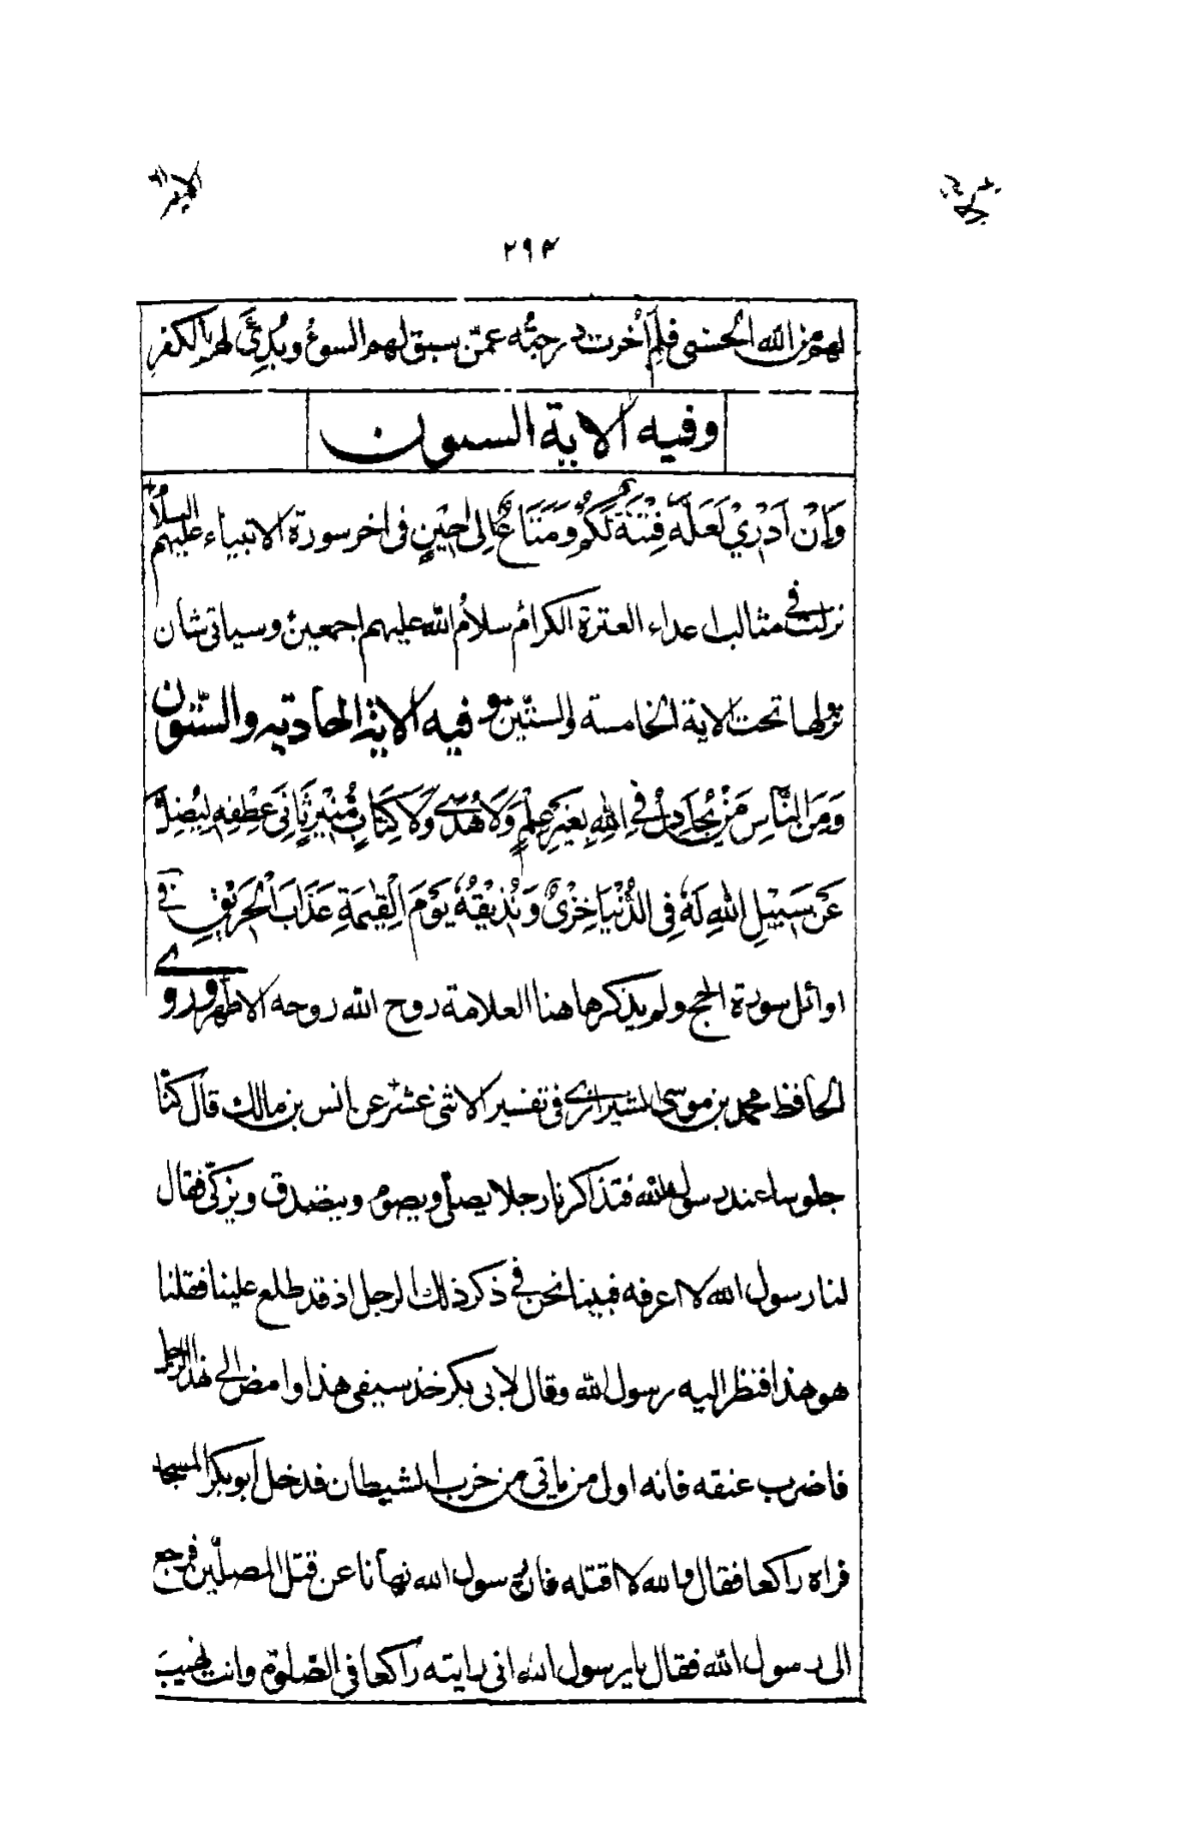 ٢٩٣
لهم من الله الحسنى فلم أخرت درجته عمن سبق لهم السوء وبدئ لهم بالكفر
وفيه الاية الستون
وَاِنْ اَدْرِيْ لَعَلَّهٗ فِتْنَةٌ لَكُمْ وَمَتَاعٌ اِلٰى حِيْنٍ فى اخر سورة الانبياء عليهم السلام
نزلت في مثالب اعداء العترة الكرام سلام الله عليهم اجمعين وسياتى شان
نزلها تحت الاية الخامسة والستين و فيه الاية الحادية والستون
وَمِنَ النَّاسِ مَنْ يُّجَادِلُ فِي اللهِ بِغَيْرِ عِلْمٍ وَلَا هُدًى وَلَا كِتَابٍ مُّنِيْرٍ ثَانِيَ عِطْفِهٖ لِيُضِلَّ
عَنْ سَبِيْلِ اللهِ لَهٗ فِي الدُّنْيَا خِزْيٌ وَّنُذِيْقُهٗ يَوْمَ الْقِيٰمَةِ عَذَابَ الْحَرِيْقِ في
اوائل سورة الحج ولم يذكرها هنا العلامة روح الله روحه الاطهر وروى
الحافظ محمد بن موسى الشيرازي فى تفسير الاثنى عشر عن انس بن مالك قال كنا
جلوسا عند رسول الله فتذاكرنا رجلا يصلى ويصوم ويتصدق ويزكى فقال
لنا رسول الله لا اعرفه فبينا نحن في ذكر ذلك الرجل اذ قد طلع علينا فقلنا
هو هذا فنظر اليه رسول الله وقال لابى بكر خذ سيفى هذا وامض الى هذا الرجل
فاضرب عنقه فانه اول من ياتى من حزب الشيطان فدخل ابو بكر المسجد
فراه راكعا فقال والله لا اقتله فان رسول الله نهانا عن قتل المصلين فرجع
الى رسول الله فقال يا رسول الله انى رايته راكعا فى الصلوة وانت نهيت